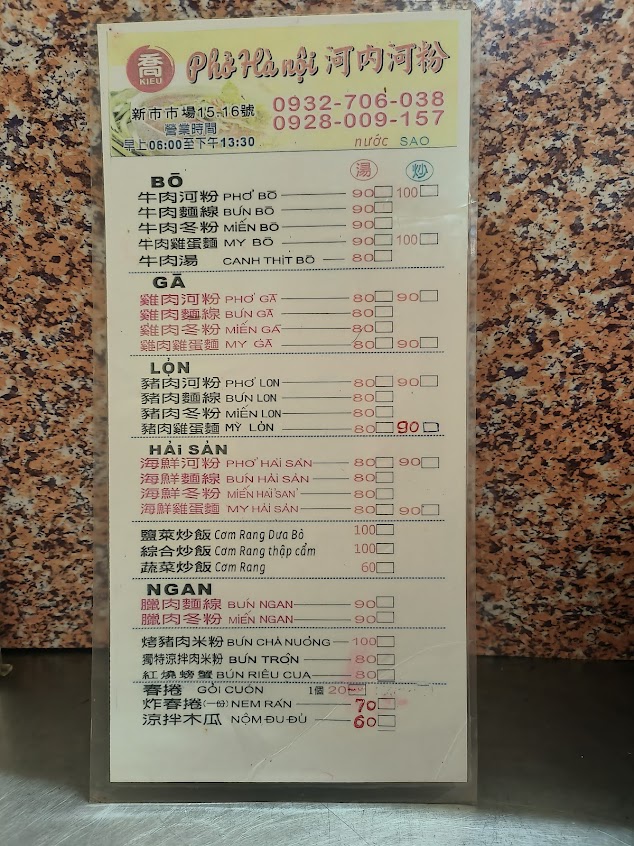 喬 KIEU
Phở Hà nội 河內河粉
新市市場15.16號
0932-706-038
營業時間
0928-009-157
早上06:00至下午13:30
nước SAO
湯 炒
BŌ
牛肉河粉 PHƠ BŌ 90 100
牛肉麵線 BƯN BŌ 90
牛肉冬粉 MIẾN BŌ 90
牛肉雞蛋麵 MY BŌ 90 100
牛肉湯 CANH THỊT BŌ 80
GĀ
雞肉河粉 PHƠ GĀ 80 90
雞肉麵線 BƯN GĀ 80
雞肉冬粉 MIẾN GA 80
雞肉雞蛋麵 MY GĀ 80 90
LỢN
豬肉河粉 PHƠ LON 80 90
豬肉麵線 BƯN LON 80
豬肉冬粉 MIẾN LON 80
豬肉雞蛋麵 MỲ LỎN 80 90
HẢi SẢN
海鮮河粉 PHƠ HẢI SẢN 80 90
海鮮麵線 BƯN HẢI SẢN 80
海鮮冬粉 MIẾN HẢI SẢN 80
海鮮雞蛋麵 MY HẢI SẢN 80 90
鹽菜炒飯 Cơm Rang Dưa Bò 100
綜合炒飯 Cơm Rang thập cẩm 100
蔬菜炒飯 Cơm Rang 60
NGAN
臘肉麵線 BƯN NGAN 90
臘肉冬粉 MIẾN NGAN 90
烤豬肉米粉 BƯN CHẢ NUỚNG 100
獨特涼拌肉米粉 BƯN TRỘN 80
紅燒螃蟹 BÚN RIÊU CUA 80
春捲 GỎI CUỐN 1個 20
炸春捲(一份) NEM RÁN 70
涼拌木瓜 NỘM ĐU ĐỦ 60